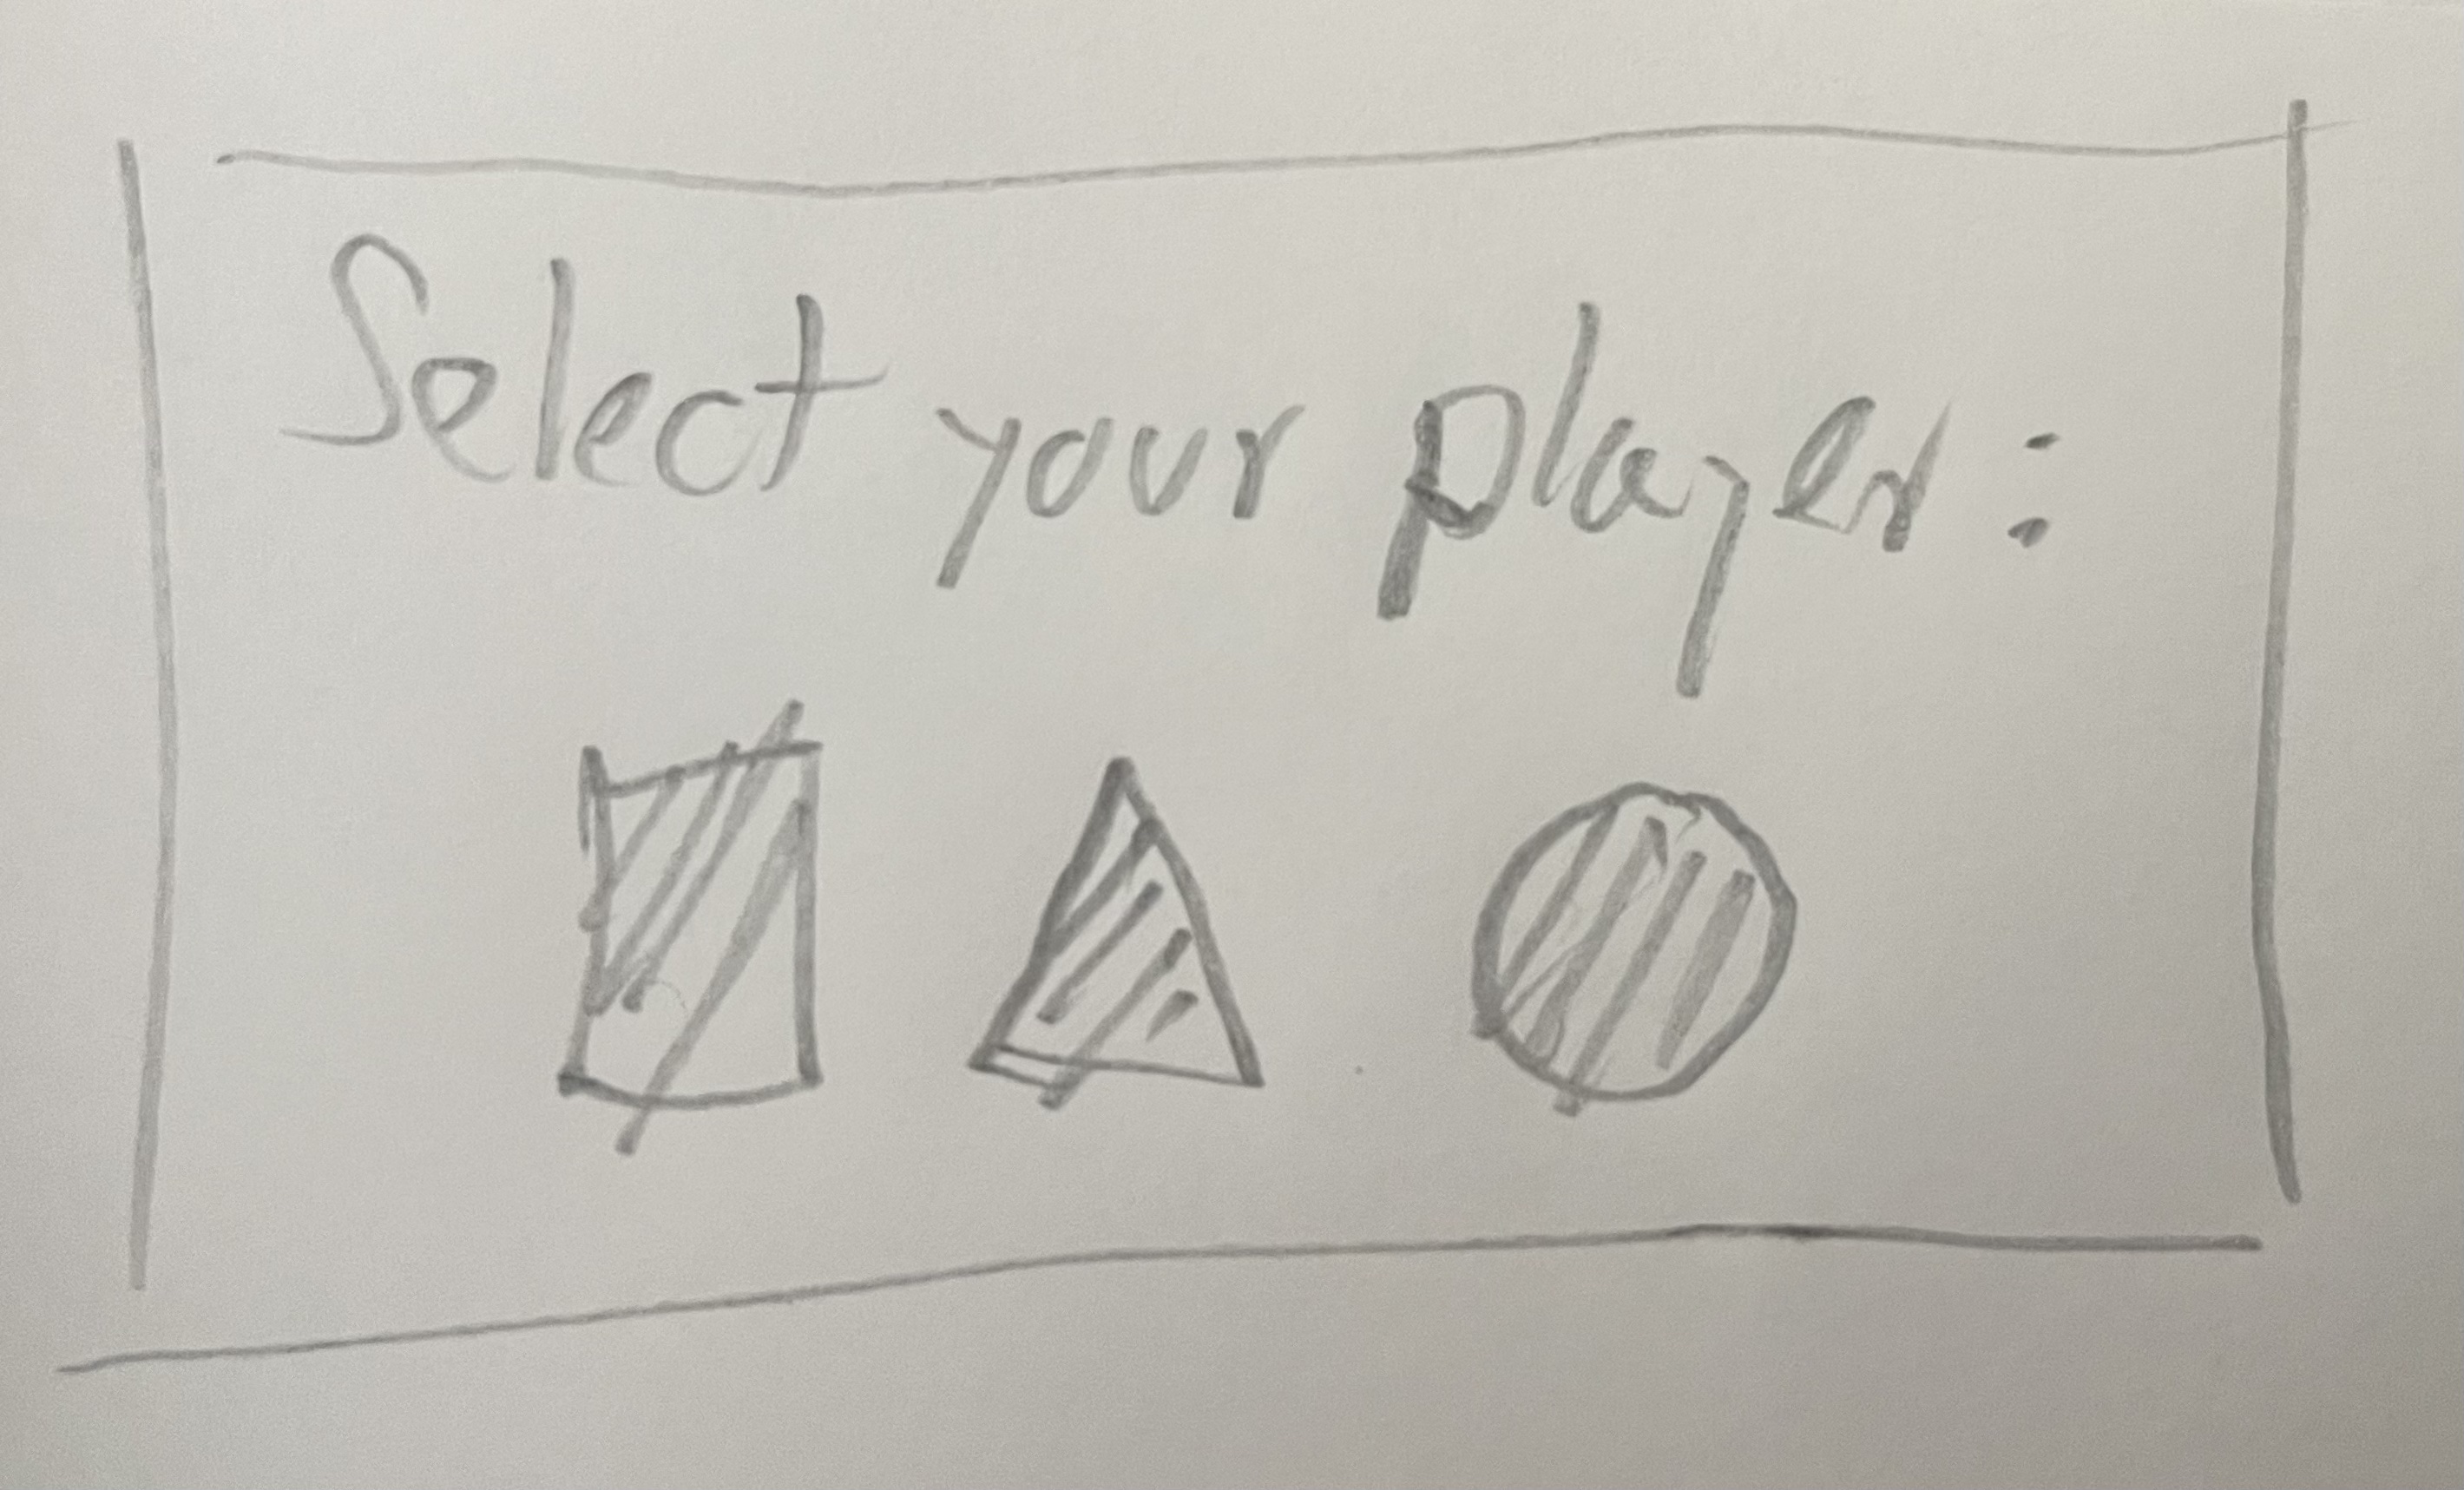 Select your player: